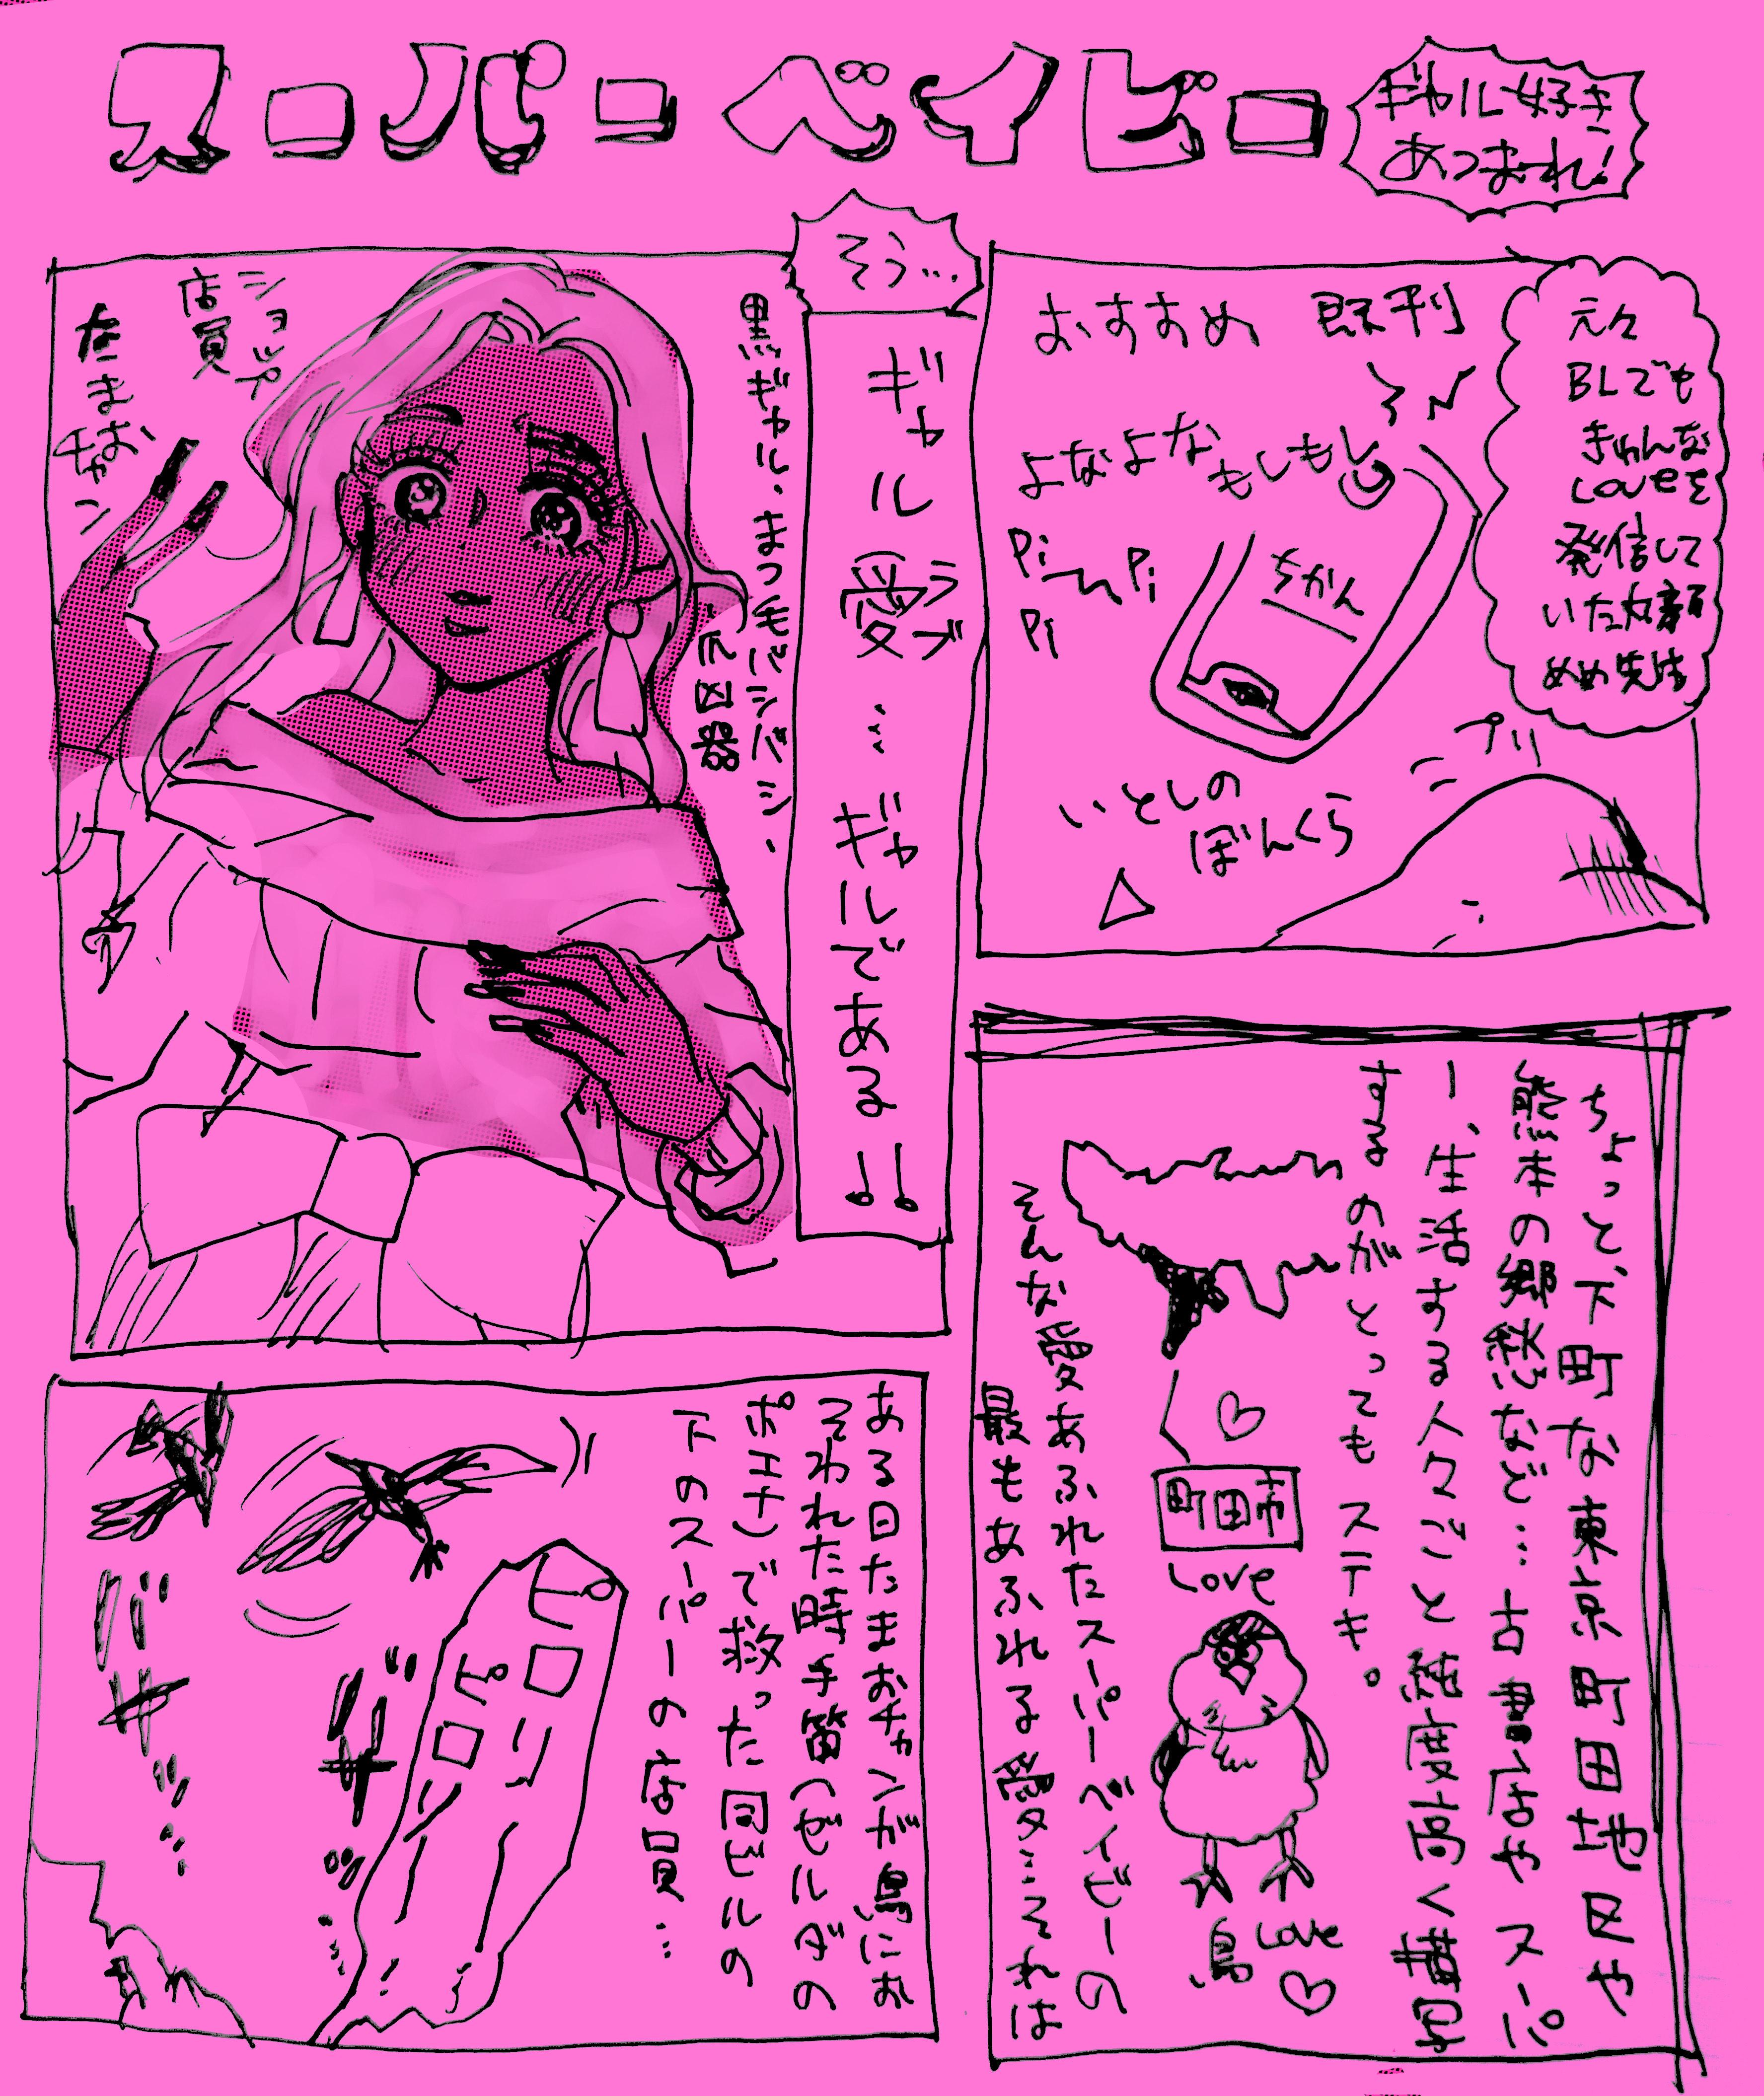 スーパーベイビー
ギャル好き
あつまれ!
元々
BLでも
きゃんな
Loveを
発信して
いた丸顔
めめ先生
既刊
おすすめ
よなよなもしもし
Pi
Pi
Pi
ちかん
プリ
いとしの
ぼんくら
そう…
ギャル愛…ギャルである!!
ラブ
黒ギャル、まつ毛バシバシ、
爪凶器
ショップ
店員
たまお
チャン
ちょっと、下町な東京町田地区や
熊本の郷愁など…古書店やスーパ
ー、生活する人々ごと純度高く描写
するのがとってもステキ。
町田市
Love
Love
鳥
そんな愛あふれたスーパーベイビーの
最もあふれる愛…それは
ある日たまおチャンが鳥にお
そわれた時手笛(ゼルダの
ポエナ)で救った同ビルの
下のスーパーの店員…
ピロリ
ピロリ
バサッ…
バサ…